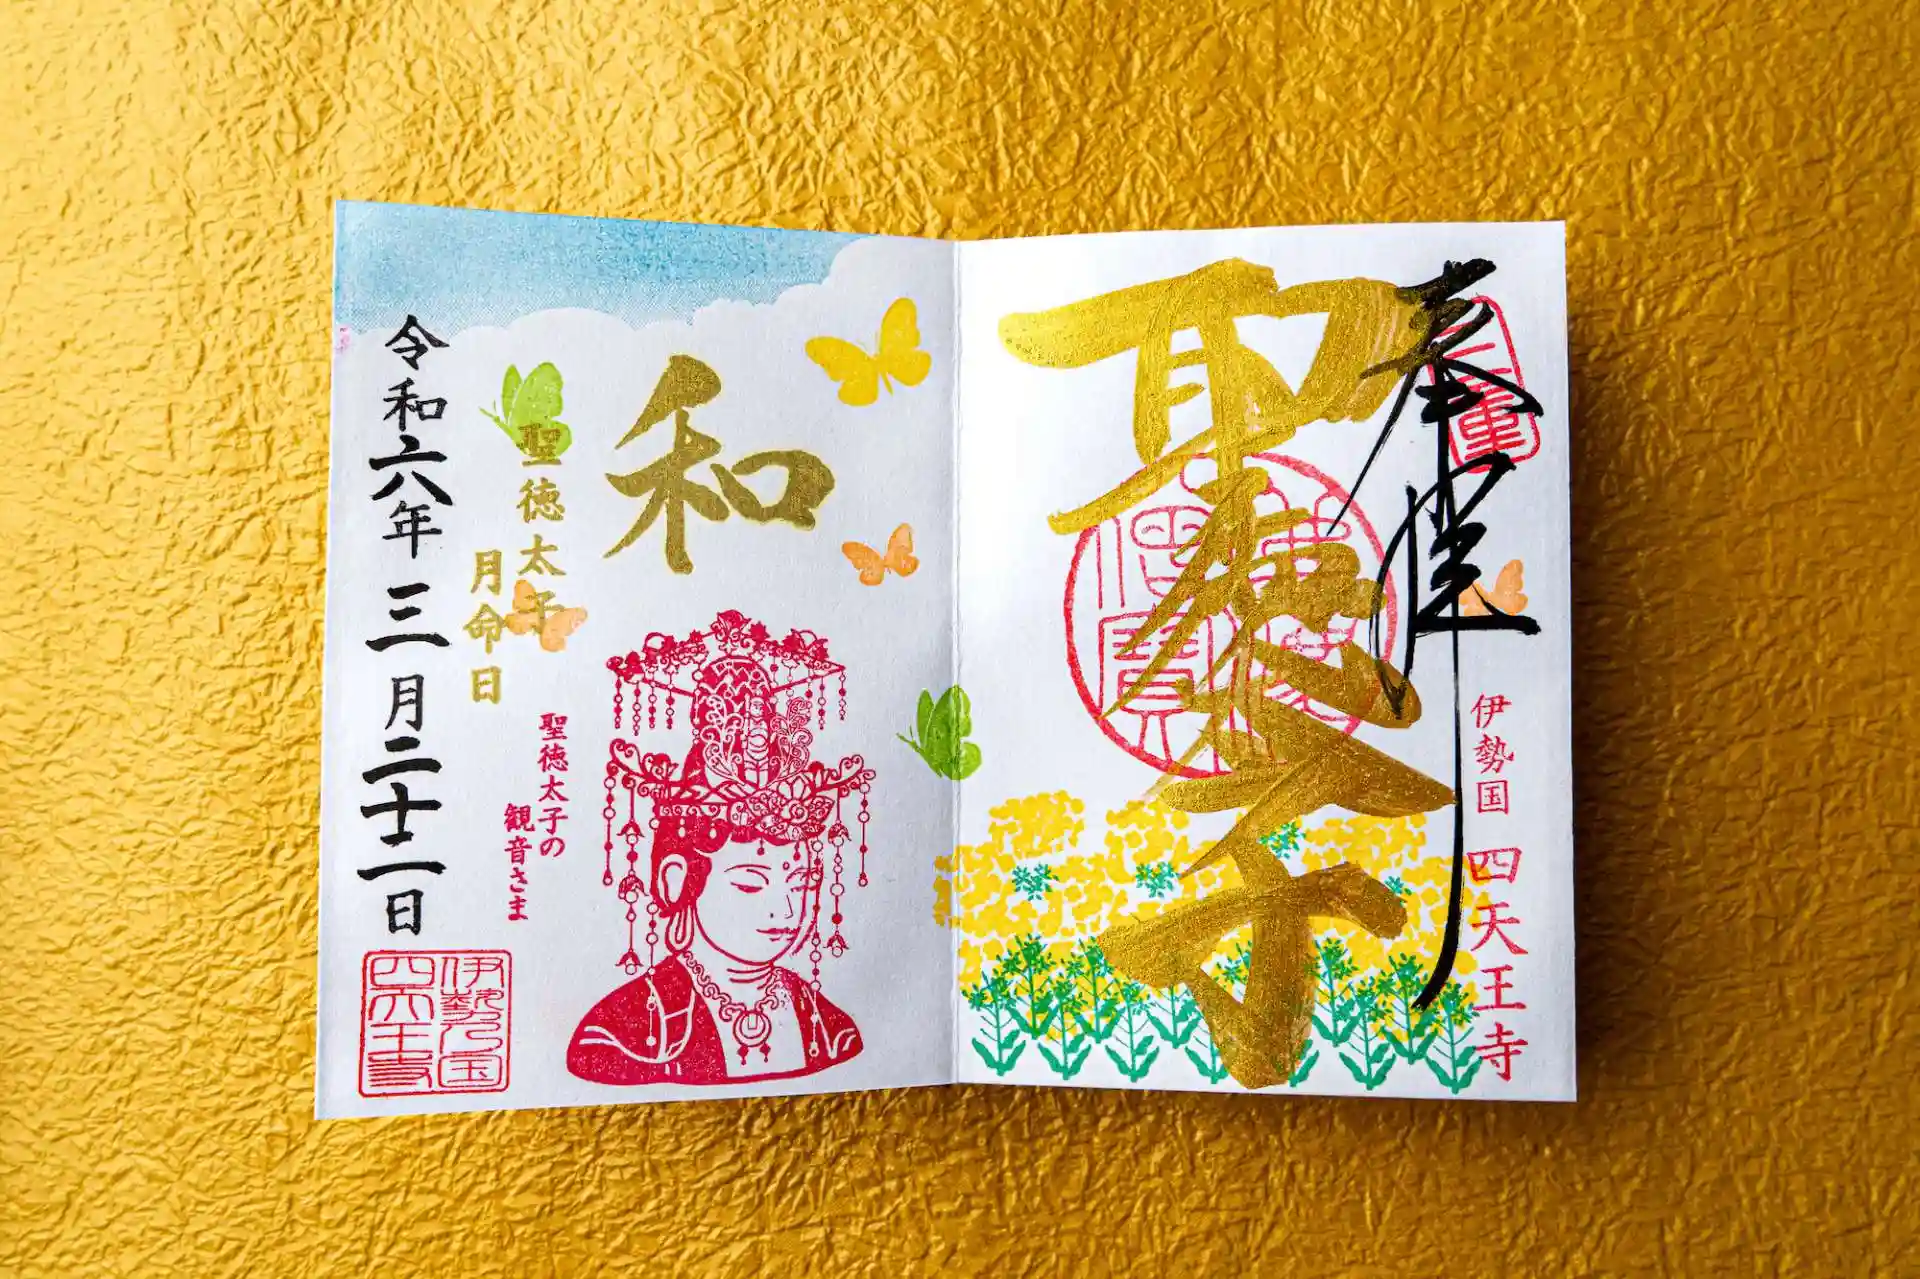 奉拝
三重
聖徳太子
伊勢国 四天王寺
和
聖徳太子
月命日
聖徳太子の
観音さま
令和六年三月二十二日
伊勢之国
四天王寺